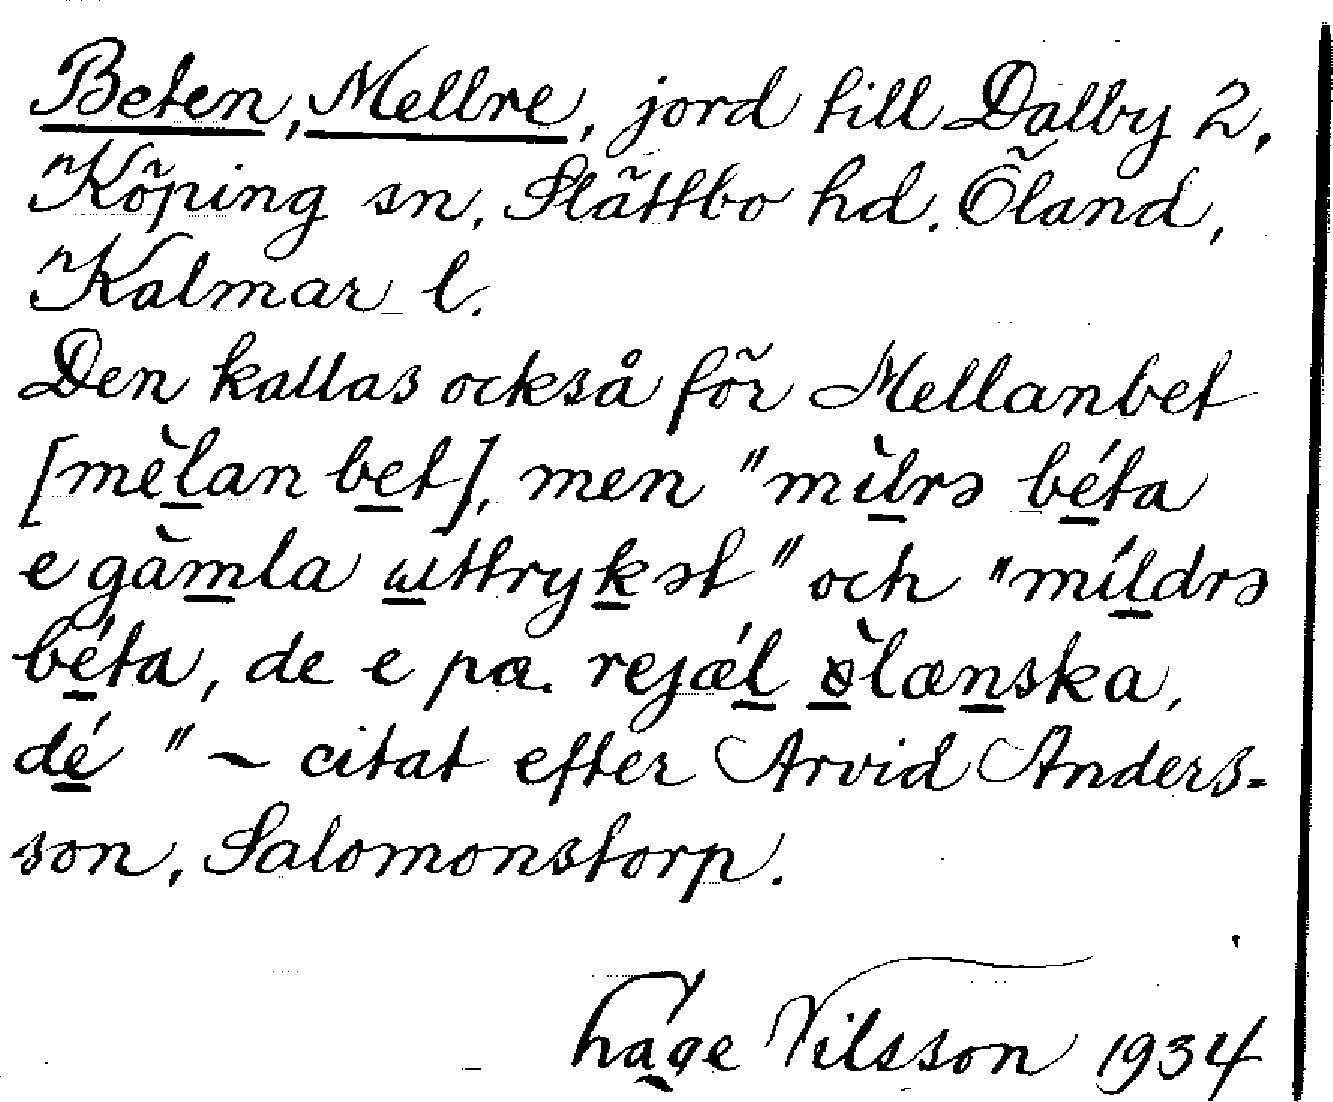 Beten, Mellre, jord till Dalby 2,
Köping sn, Slättbo hd. Öland,
Kalmar l.
Den kallas också för Mellanbet
[mèlan bet], men "mìlrə béta
e gàmla uttrykət" och "míldrə
béta, de e pæ. rejǽl ɷ̀lænska,
dé" ~ citat efter Arvid Anders-
son, Salomonstorp.
Nilsson 1934